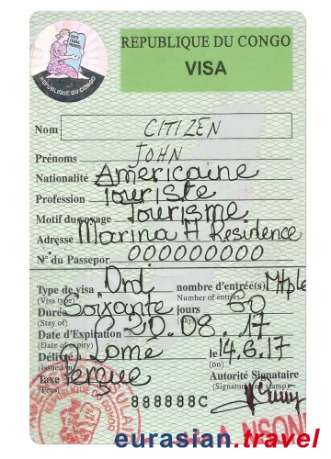 REPUBLIQUE DU CONGO
VISA
REPUBLIQUE DU CONGO
Nom CITIZEN
Prénoms JOHN
Nationalité Américaine
Profession Touriste
Motif du voyage Tourisme
Adresse Marina H Residence
N° du Passepor 000000000
Type de visa Ord nombre d'entrée(s) Mtple
(Visa type) Number of entries
Durée Soixante jours 60
(Stay of) days
Date d'Expiration 20.08.17
(Date of expiry)
Délivré Lomé le 14.6.17
(issued in) (on)
Taxe Perçue Autorité Signataire
(Fees) (Signature and stamp)
888888C
NSON
eurasian.travel